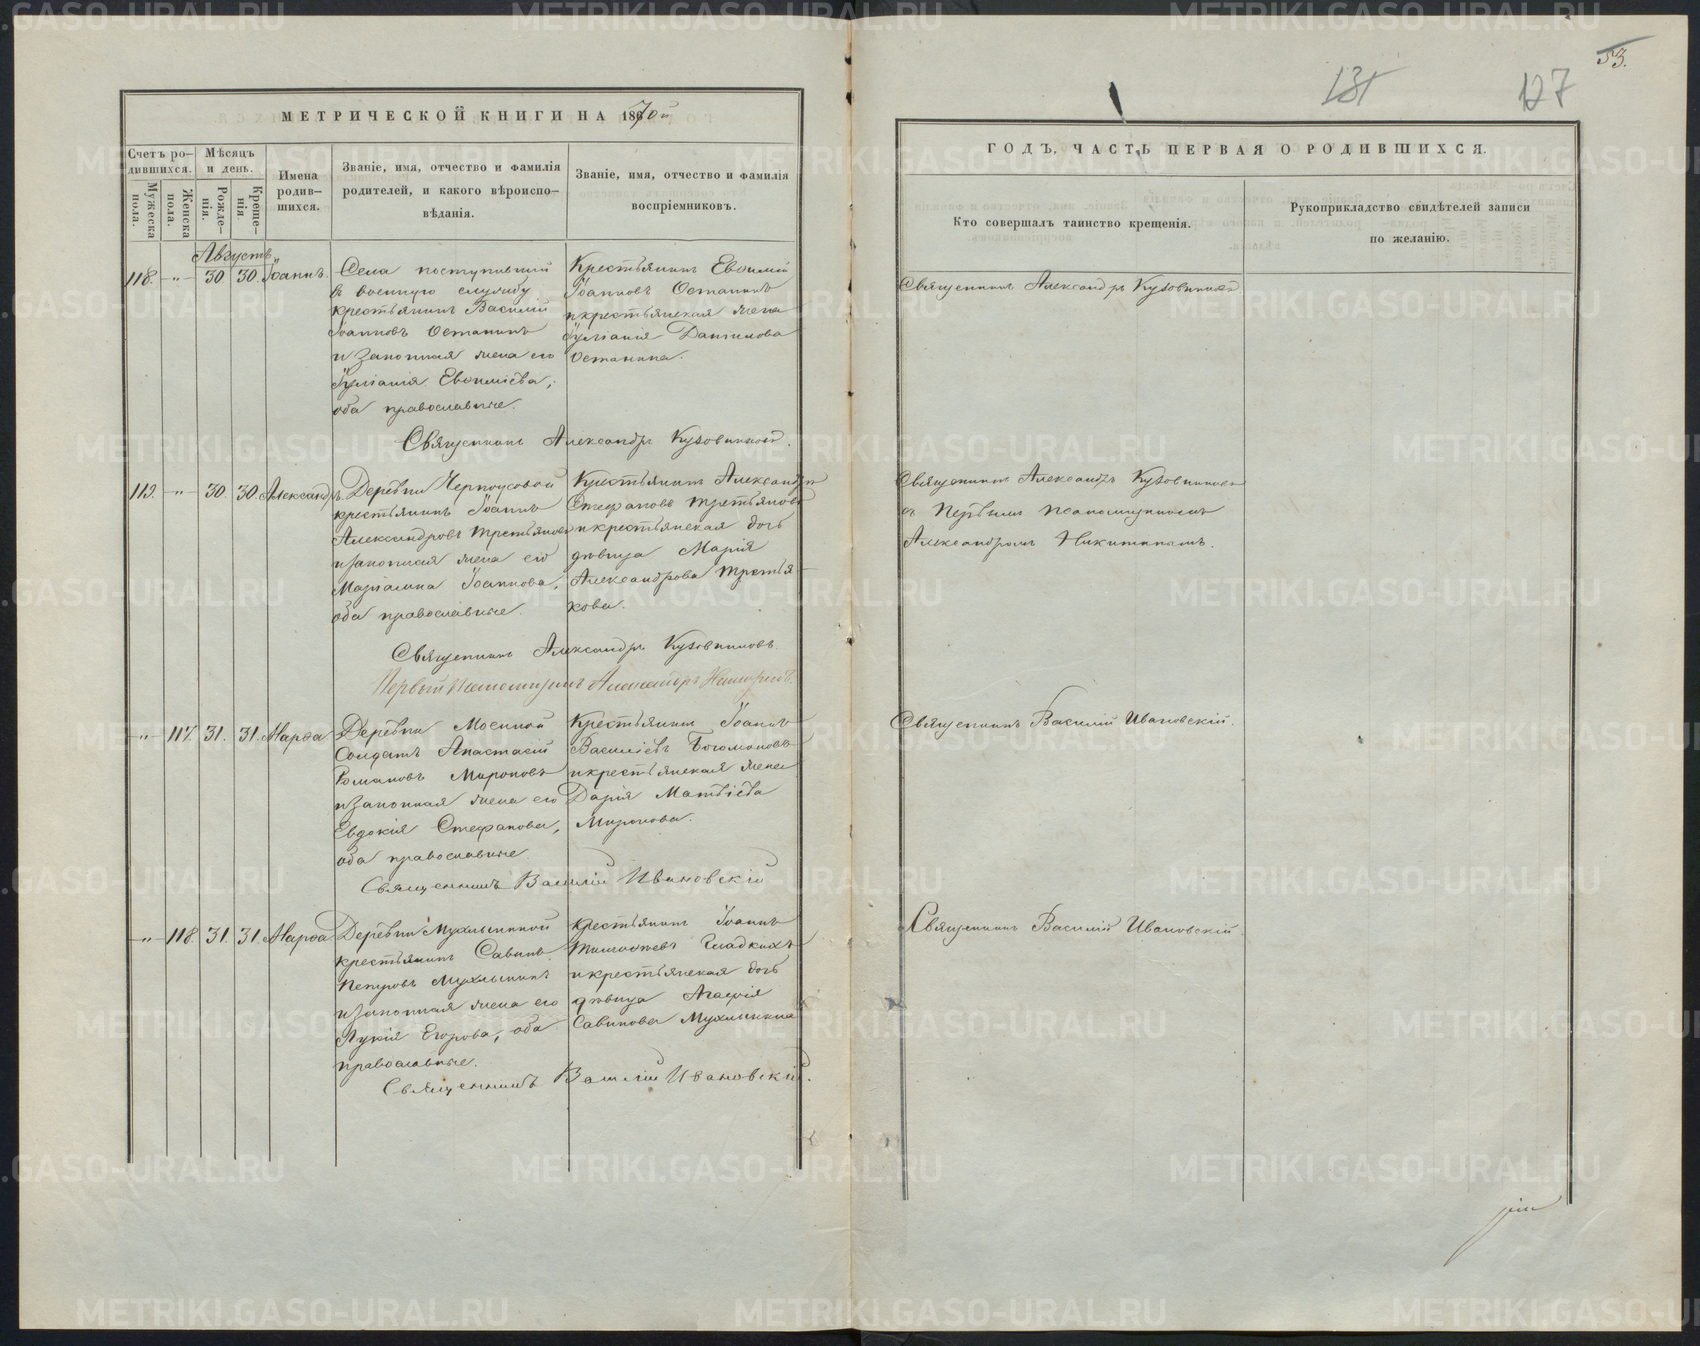 53.
131
127
МЕТРИЧЕСКОЙ КНИГИ НА 1870й
Счетъ ро-
дившихся.
Мужеска
пола.
Женска
пола.
Мѣсяцъ
и день.
Рожде-
нія.
Креще-
нія.
Имена
родив-
шихся.
Званіе, имя, отчество и фамилія
родителей, и какого вѣроиспо-
вѣданія.
Званіе, имя, отчество и фамилія
воспріемниковъ.
Августъ
118. " 30. 30. Іоаннъ.
Села поступившій
въ военную службу
крестьянинъ Василій
Іоанновъ Останинъ
и законная жена его
Іуліанія Евѳиміева,
оба православные.
Крестьянинъ Евѳимій
Іоанновъ Останинъ
и крестьянская жена
Іуліанія Даніилова
Останина.
Священникъ Александръ Кузовниковъ.
119. " 30. 30. Александръ.
Деревни Черноусовой
крестьянинъ Іоаннъ
Александровъ Третьяковъ
и законная жена его
Маріамна Іоаннова,
оба православные.
Крестьянинъ Александръ
Стефановъ Третьяковъ
и крестьянская дочь
дѣвица Марія
Александрова Третья-
кова.
Священникъ Александръ Кузовниковъ.
Первый Псаломщикъ Александръ Никитинъ.
" 117. 31. 31. Марѳа
Деревни Мосиной
Солдатъ Анастасій
Романовъ Мироновъ
и законная жена его
Евдокія Стефанова,
оба православные.
Крестьянинъ Іоаннъ
Василіевъ Богомоловъ
и крестьянская жена
Дарія Матѳіева
Миронова.
Священникъ Василій Ивановскій
" 118. 31. 31. Марѳа
Деревни Мухлыниной
крестьянинъ Савинъ
Петровъ Мухлынинъ
и законная жена его
Лукія Егорова, оба
православные.
крестьянинъ Іоаннъ
Тимоѳеевъ Гладкихъ
и крестьянская дочь
дѣвица Агафія
Савинова Мухлынина
Священникъ Василій Ивановскій.
ГОДЪ, ЧАСТЬ ПЕРВАЯ О РОДИВШИХСЯ.
Кто совершалъ таинство крещенія.
Рукоприкладство свидѣтелей записи
по желанію.
Священникъ Александръ Кузовниковъ
Священникъ Александръ Кузовниковъ
съ Первымъ Псаломщикомъ
Александромъ Никитинымъ.
Священникъ Василій Ивановскій.
Священникъ Василій Ивановскій.
METRIKI.GASO-URAL.RU